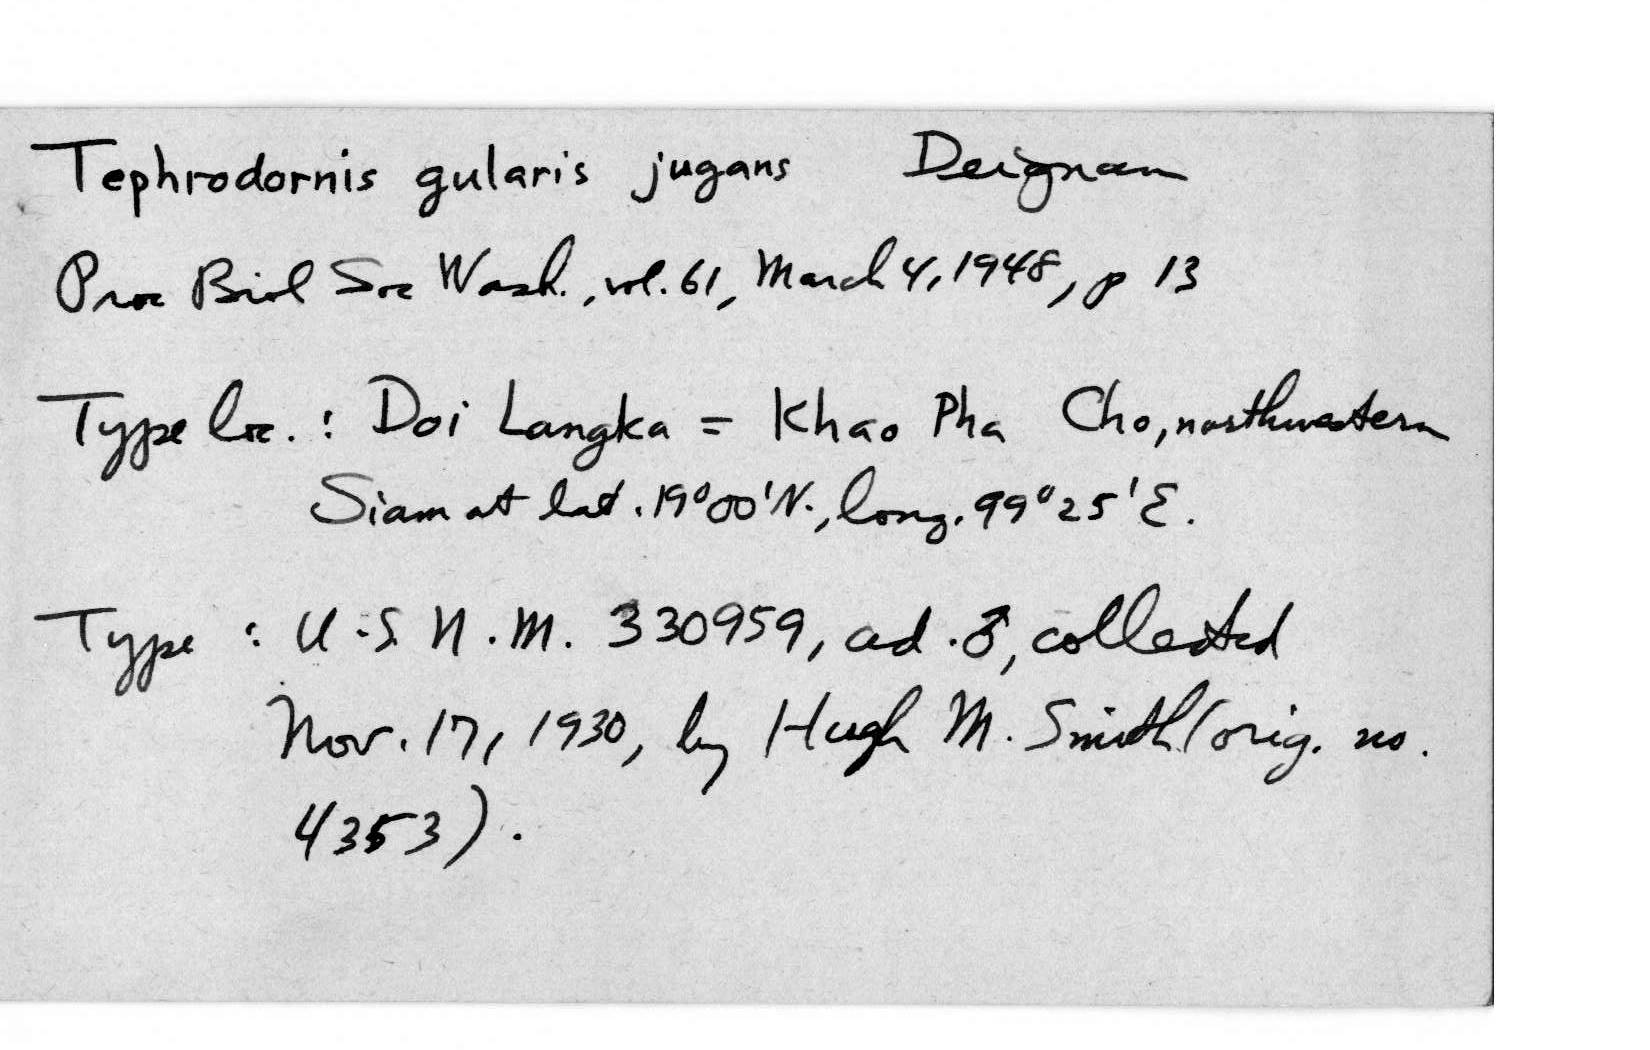 Tephrodornis gularis jugans Deignan
Proc Biol Soc Wash., vol. 61, March 4, 1948, p 13
Type loc. : Doi Langka = Khao Pha Cho, northwestern
Siam at lat. 19°00'N., long. 99°25'E.
Type : U.S.N.M. 330959, ad. ♂, collected
Nov. 17, 1930, by Hugh M. Smith (orig. no.
4353).